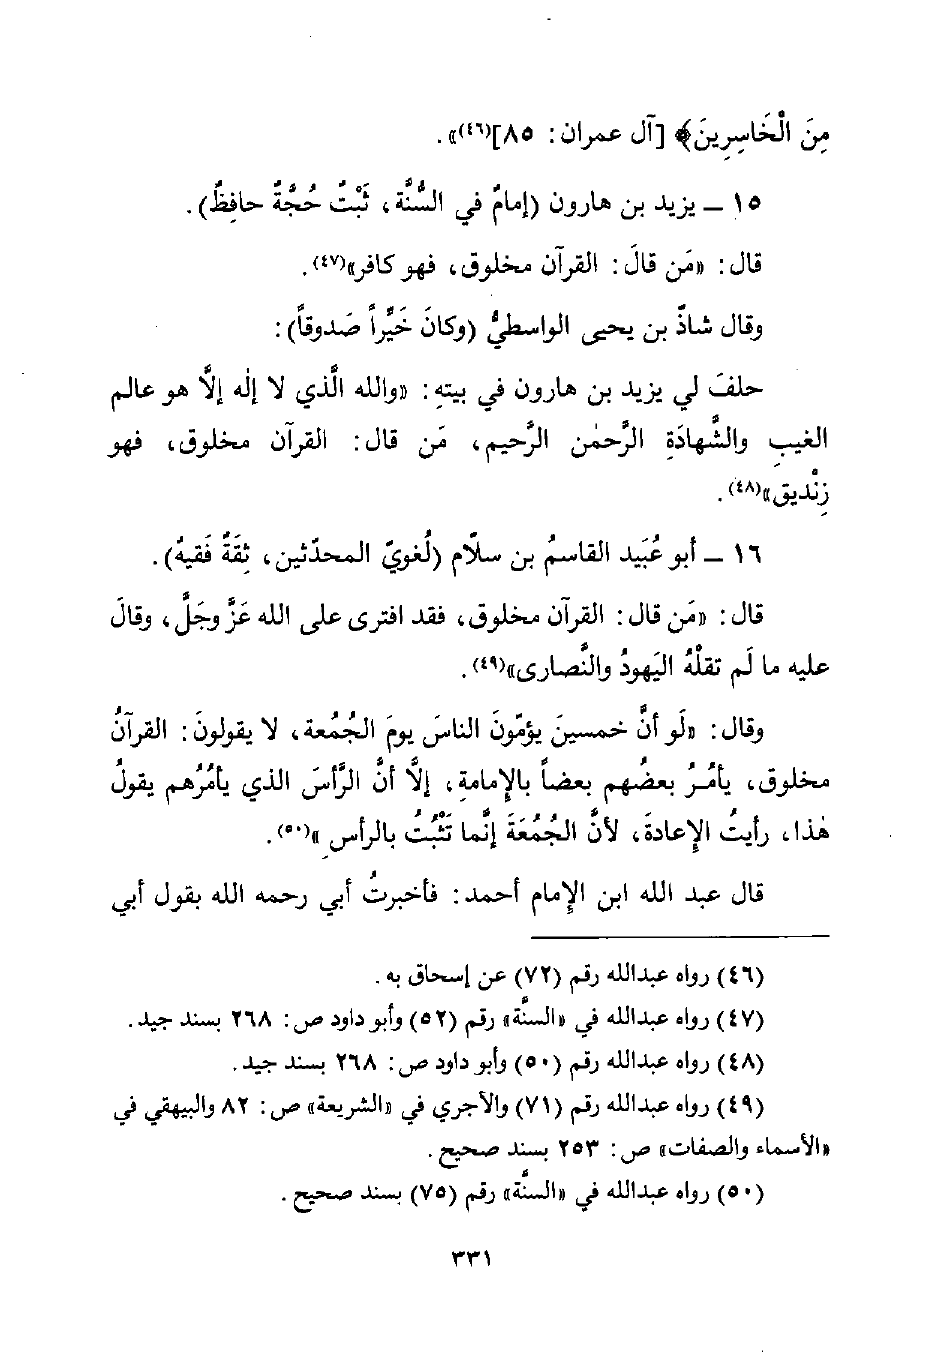 مِنَ الْخَاسِرِينَ﴾ [آل عمران: ٨٥]»(٤٦).
١٥ ـ يزيد بن هارون (إمامٌ في السُّنَّة، ثَبْتٌ حُجَّةٌ حافِظٌ).
قال: «مَن قالَ: القرآن مخلوق، فهو كافر»(٤٧).
وقال شاذّ بن يحيى الواسطيُّ (وكانَ خَيِّراً صَدوقاً):
حلفَ لي يزيد بن هارون في بيتهِ: «والله الَّذي لا إلٰه إلَّا هو عالم
الغيبِ والشَّهادَةِ الرَّحمٰن الرَّحيم، مَن قال: القرآن مخلوق، فهو
زِنْديق»(٤٨).
١٦ ـ أبو عُبَيد القاسمُ بن سلّام (لُغويّ المحدّثين، ثِقَةٌ فَقيهٌ).
قال: «مَن قال: القرآن مخلوق، فقد افترى على الله عَزَّ وجَلَّ، وقالَ
عليه ما لَم تقلْهُ اليَهودُ والنَّصارى»(٤٩).
وقال: «لَو أنَّ خمسينَ يؤمّونَ الناسَ يومَ الجُمُعة، لا يقولونَ: القرآنُ
مخلوق، يأمُرُ بعضُهم بعضاً بالإمامةِ، إلَّا أنَّ الرَّأسَ الذي يأمُرُهم يقولُ
هٰذا، رأيتُ الإعادةَ، لأنَّ الجُمُعَةَ إنَّما تَثْبُتُ بالرأسِ»(٥٠).
قال عبد الله ابن الإمام أحمد: فأخبرتُ أبي رحمه الله بقول أبي
(٤٦) رواه عبدالله رقم (٧٢) عن إسحاق به.
(٤٧) رواه عبدالله في «السنَّة» رقم (٥٢) وأبو داود ص: ٢٦٨ بسند جيد.
(٤٨) رواه عبدالله رقم (٥٠) وأبو داود ص: ٢٦٨ بسند جيد.
(٤٩) رواه عبدالله رقم (٧١) والآجري في «الشريعة» ص: ٨٢ والبيهقي في
«الأسماء والصفات» ص: ٢٥٣ بسند صحيح.
(٥٠) رواه عبدالله في «السنَّة» رقم (٧٥) بسند صحيح.
٣٣١